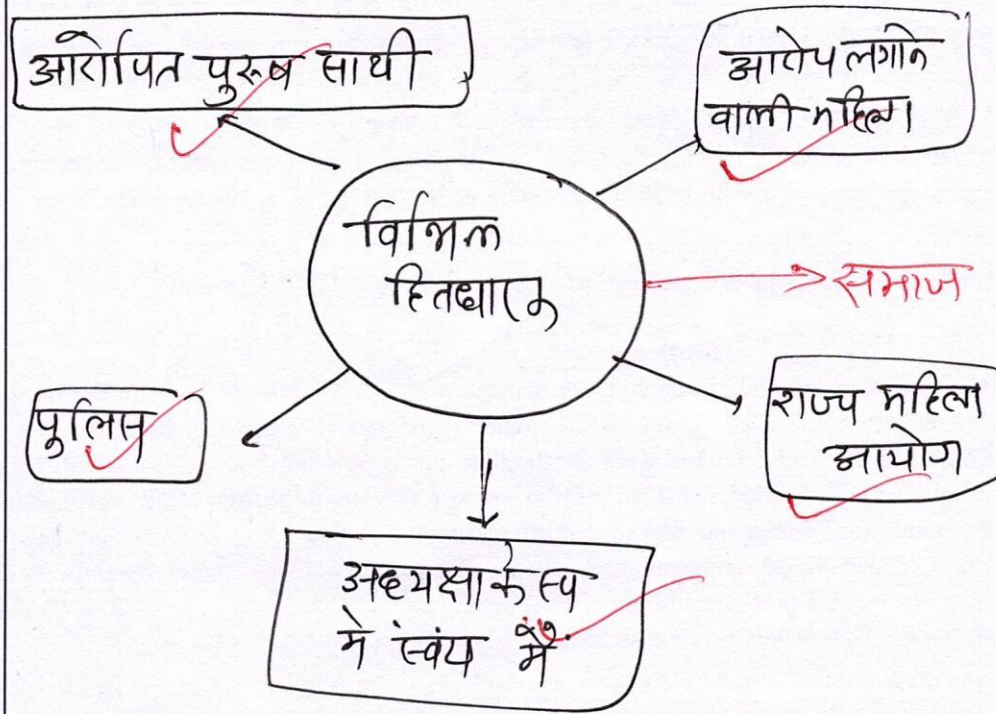 आरोपित पुरुष साथी
आरोप लगाने
वाली महिला
विभिन्न
हितधारक
समाज
पुलिस
राज्य महिला
आयोग
अध्यक्षा के रूप
मे स्वंय मैं